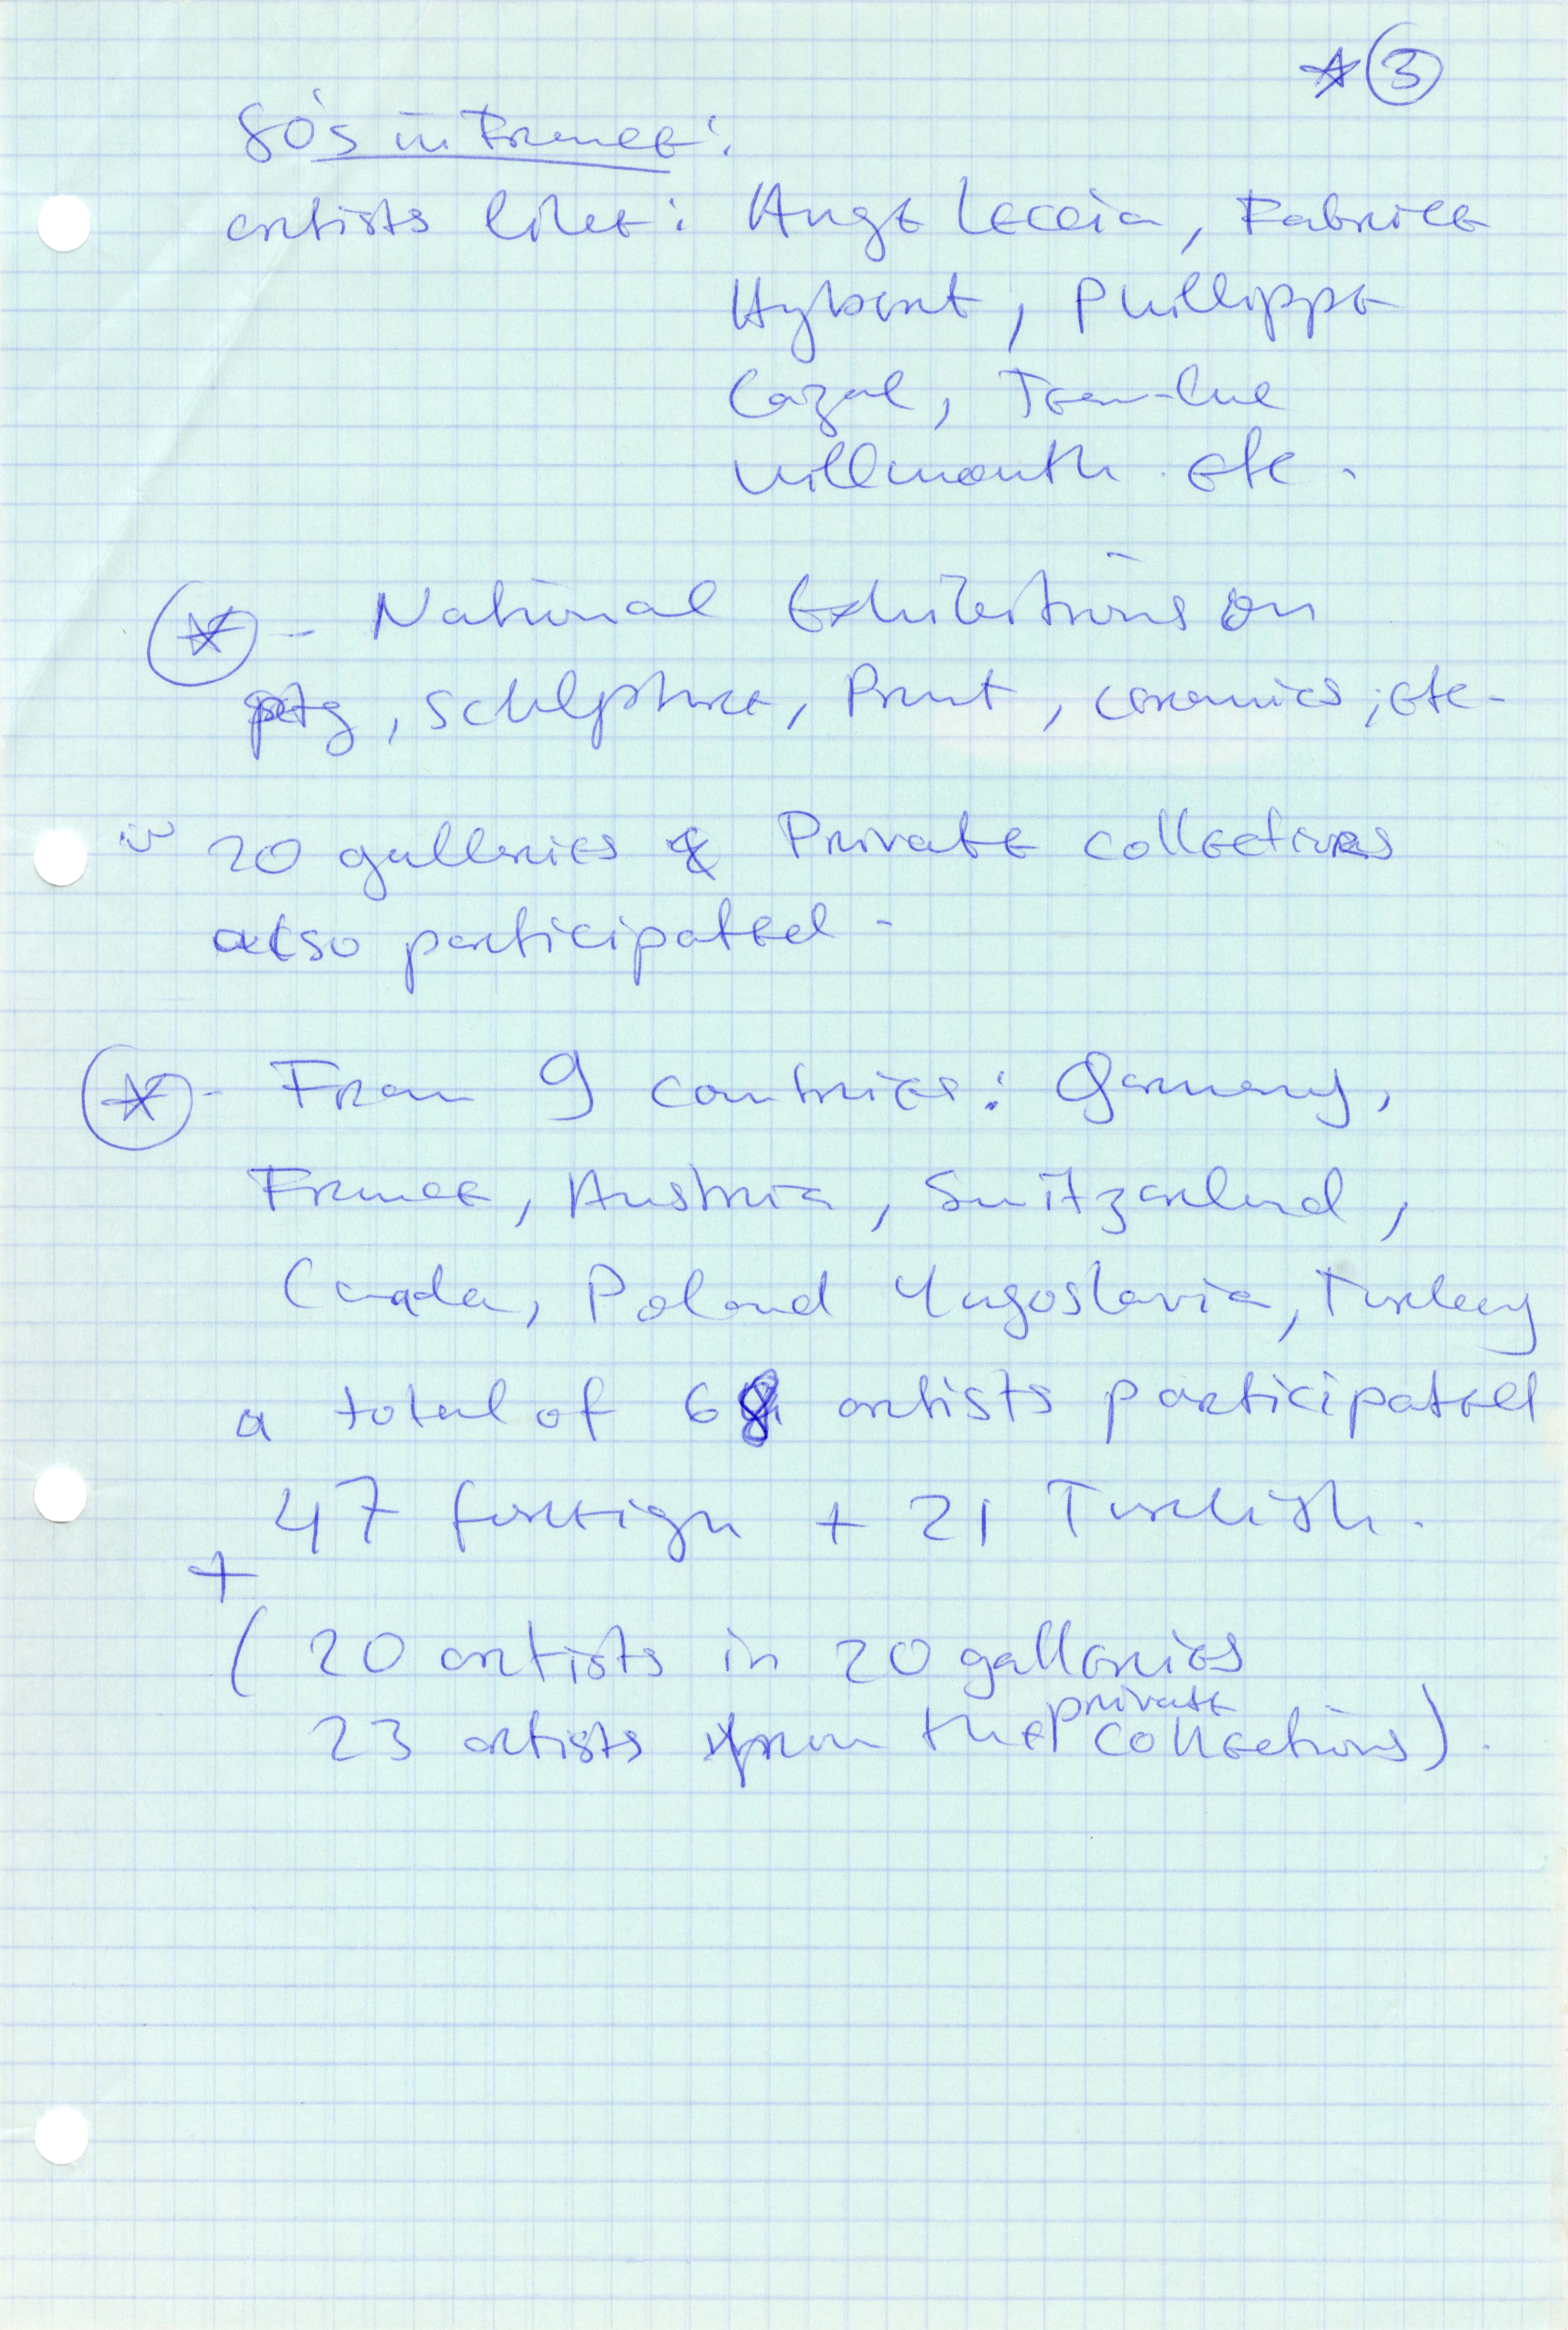 ☆ ③
80's in France:
artists like: Ange Leccia, Fabrice
Hybert, Phillippe
Cazal, Jean-Luc
Villmouth etc.
☆ - National Exhibitions on
ptg, sculpture, Print, ceramics, etc-
20 galleries & Private collections
also participated -
☆ - From 9 countries: Germany,
France, Austria, Switzerland,
Canada, Poland Yugoslavia, Turkey
a total of 68 artists participated
47 foreign + 21 Turkish.
+
( 20 artists in 20 galleries
23 artists from the private collections).